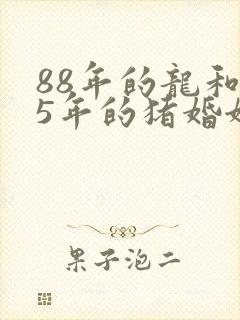 88年的龍和
5年的猪婚
果子泡二